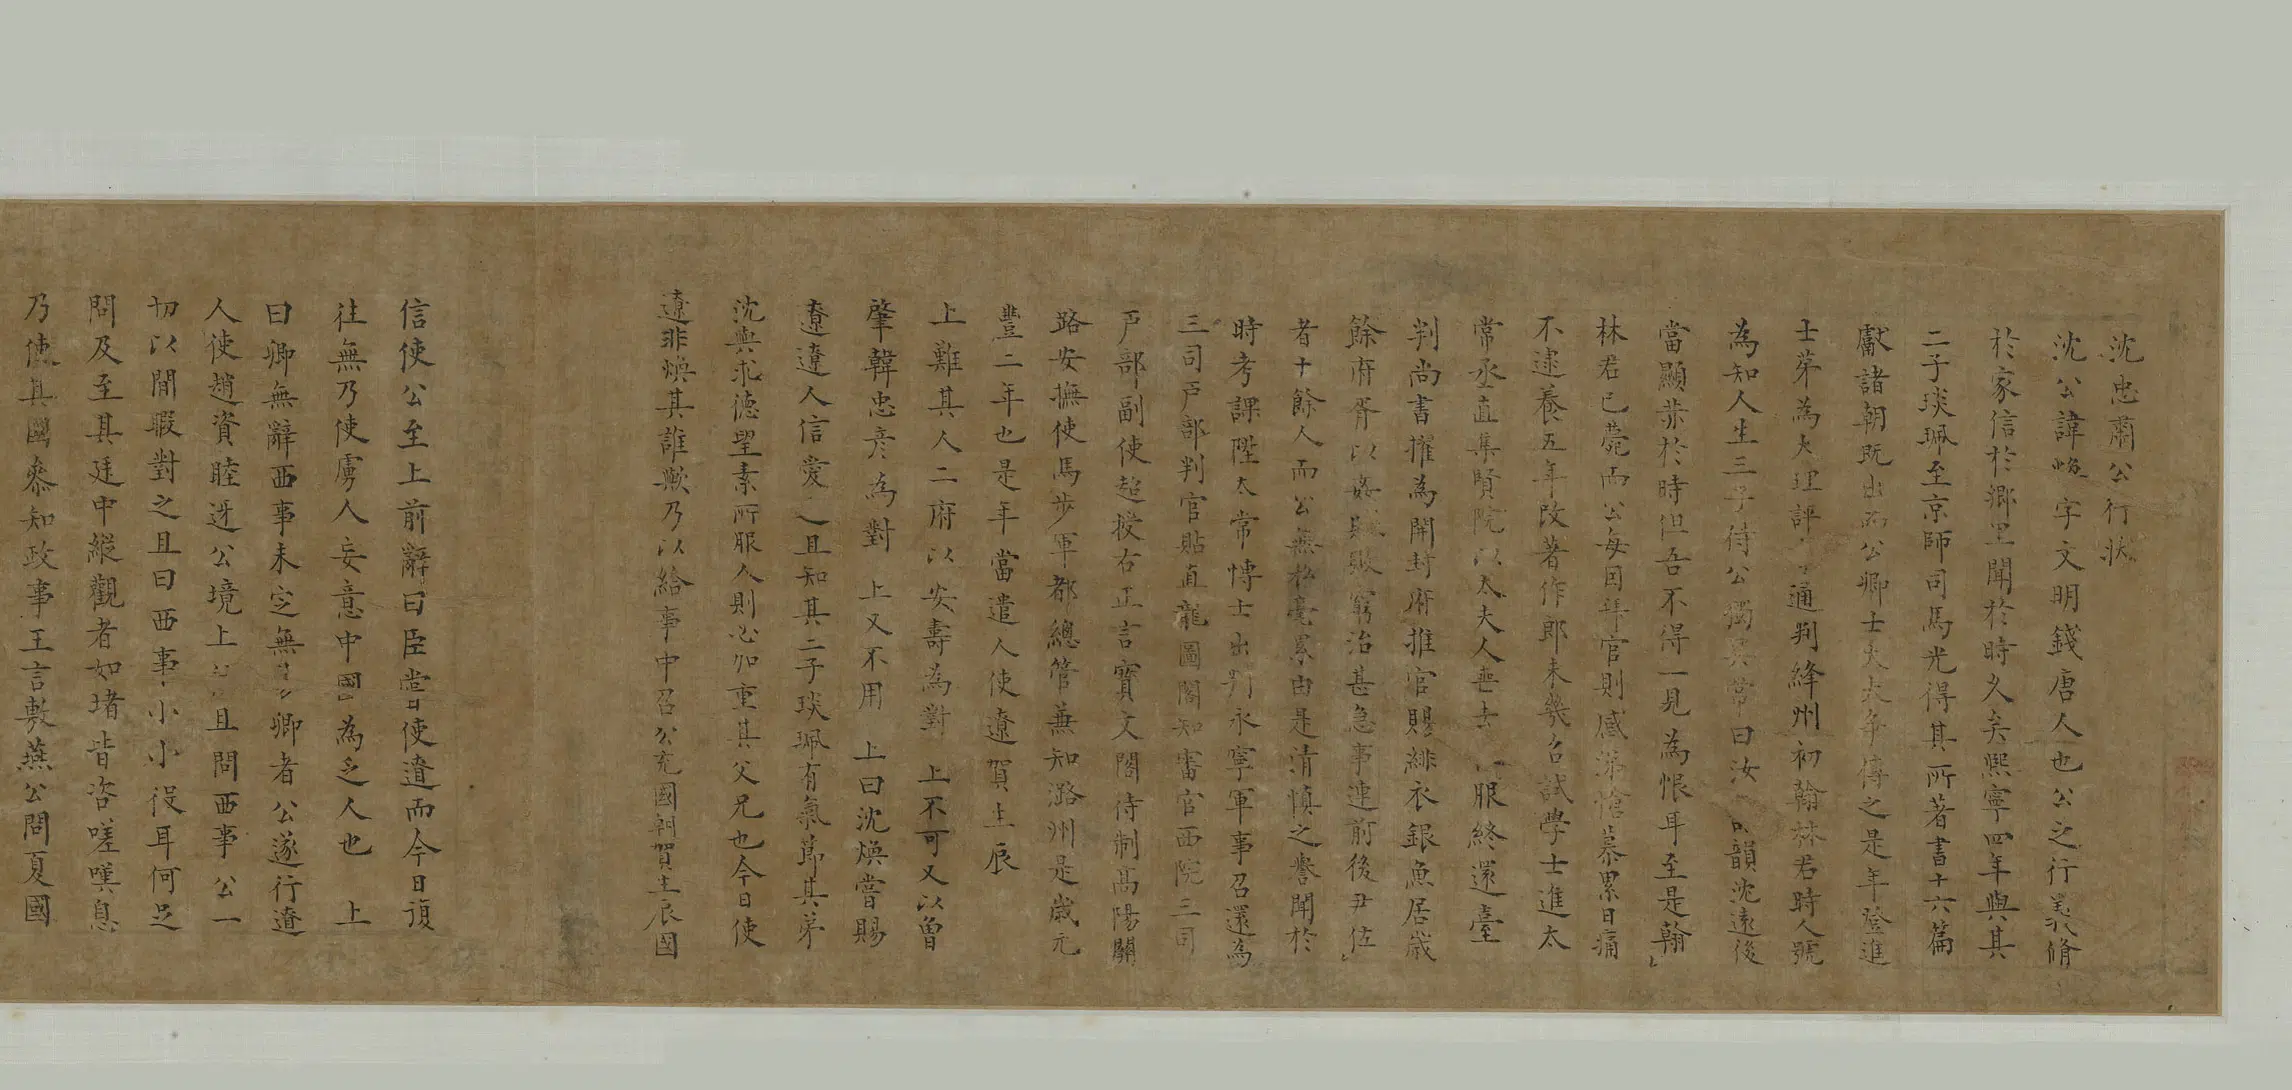 沈忠肅公行狀
沈公諱 字文明錢唐人也公之行義脩
於家信於鄉里聞於時久矣熙寧四年與其
二子琰珮至京師司馬光得其所著書十六篇
獻諸朝既出而公卿士大夫爭傳之是年登進
士第為大理評 通判絳州初翰林君時人號
為知人生三子待公獨異常曰汝 韻沈遠後
當顯榮於時但吾不得一見為恨耳至是翰
林君已薨而公每因拜官則感涕愴慕累日痛
不逮養五年改著作郎未幾召試學士進太
常丞直集賢院以太夫人喪去 服終還臺
判尚書擢為開封府推官賜緋衣銀魚居歲
餘府胥以姦 敗窮治甚急事連前後尹位
者十餘人而公無私毫累由是清慎之譽聞於
時考課陞太常博士出判永寧軍事召還為
三司戶部判官貼直龍圖閣知審官西院三司
戶部副使超授右正言寶文閣待制高陽關
路安撫使馬步軍都總管兼知潞州是歲元
豐二年也是年當遣人使遼賀生辰
上難其人二府以安壽為對 上不可又以曾
肇韓忠彥為對 上又不用 上曰沈煥嘗賜
遼遼人信愛之且知其二子琰珮有氣節其弟
沈與求德望素所服人則必加重其父兄也今日使
遼非煥其誰歟乃以給事中召公充國朝賀生辰國
信使公至上前辭曰臣嘗使遼而今日復
往無乃使虜人妄意中國 為乏人也 上
曰卿無辭西事未定無 卿者公遂行遼
人使趙資睦迓公境上 且問西事公一
切以閒暇對之且曰西事小小役耳何足
問及至其廷中縱觀者如堵皆咨嗟嘆息
乃使其國參知政事王言敷燕公問夏國